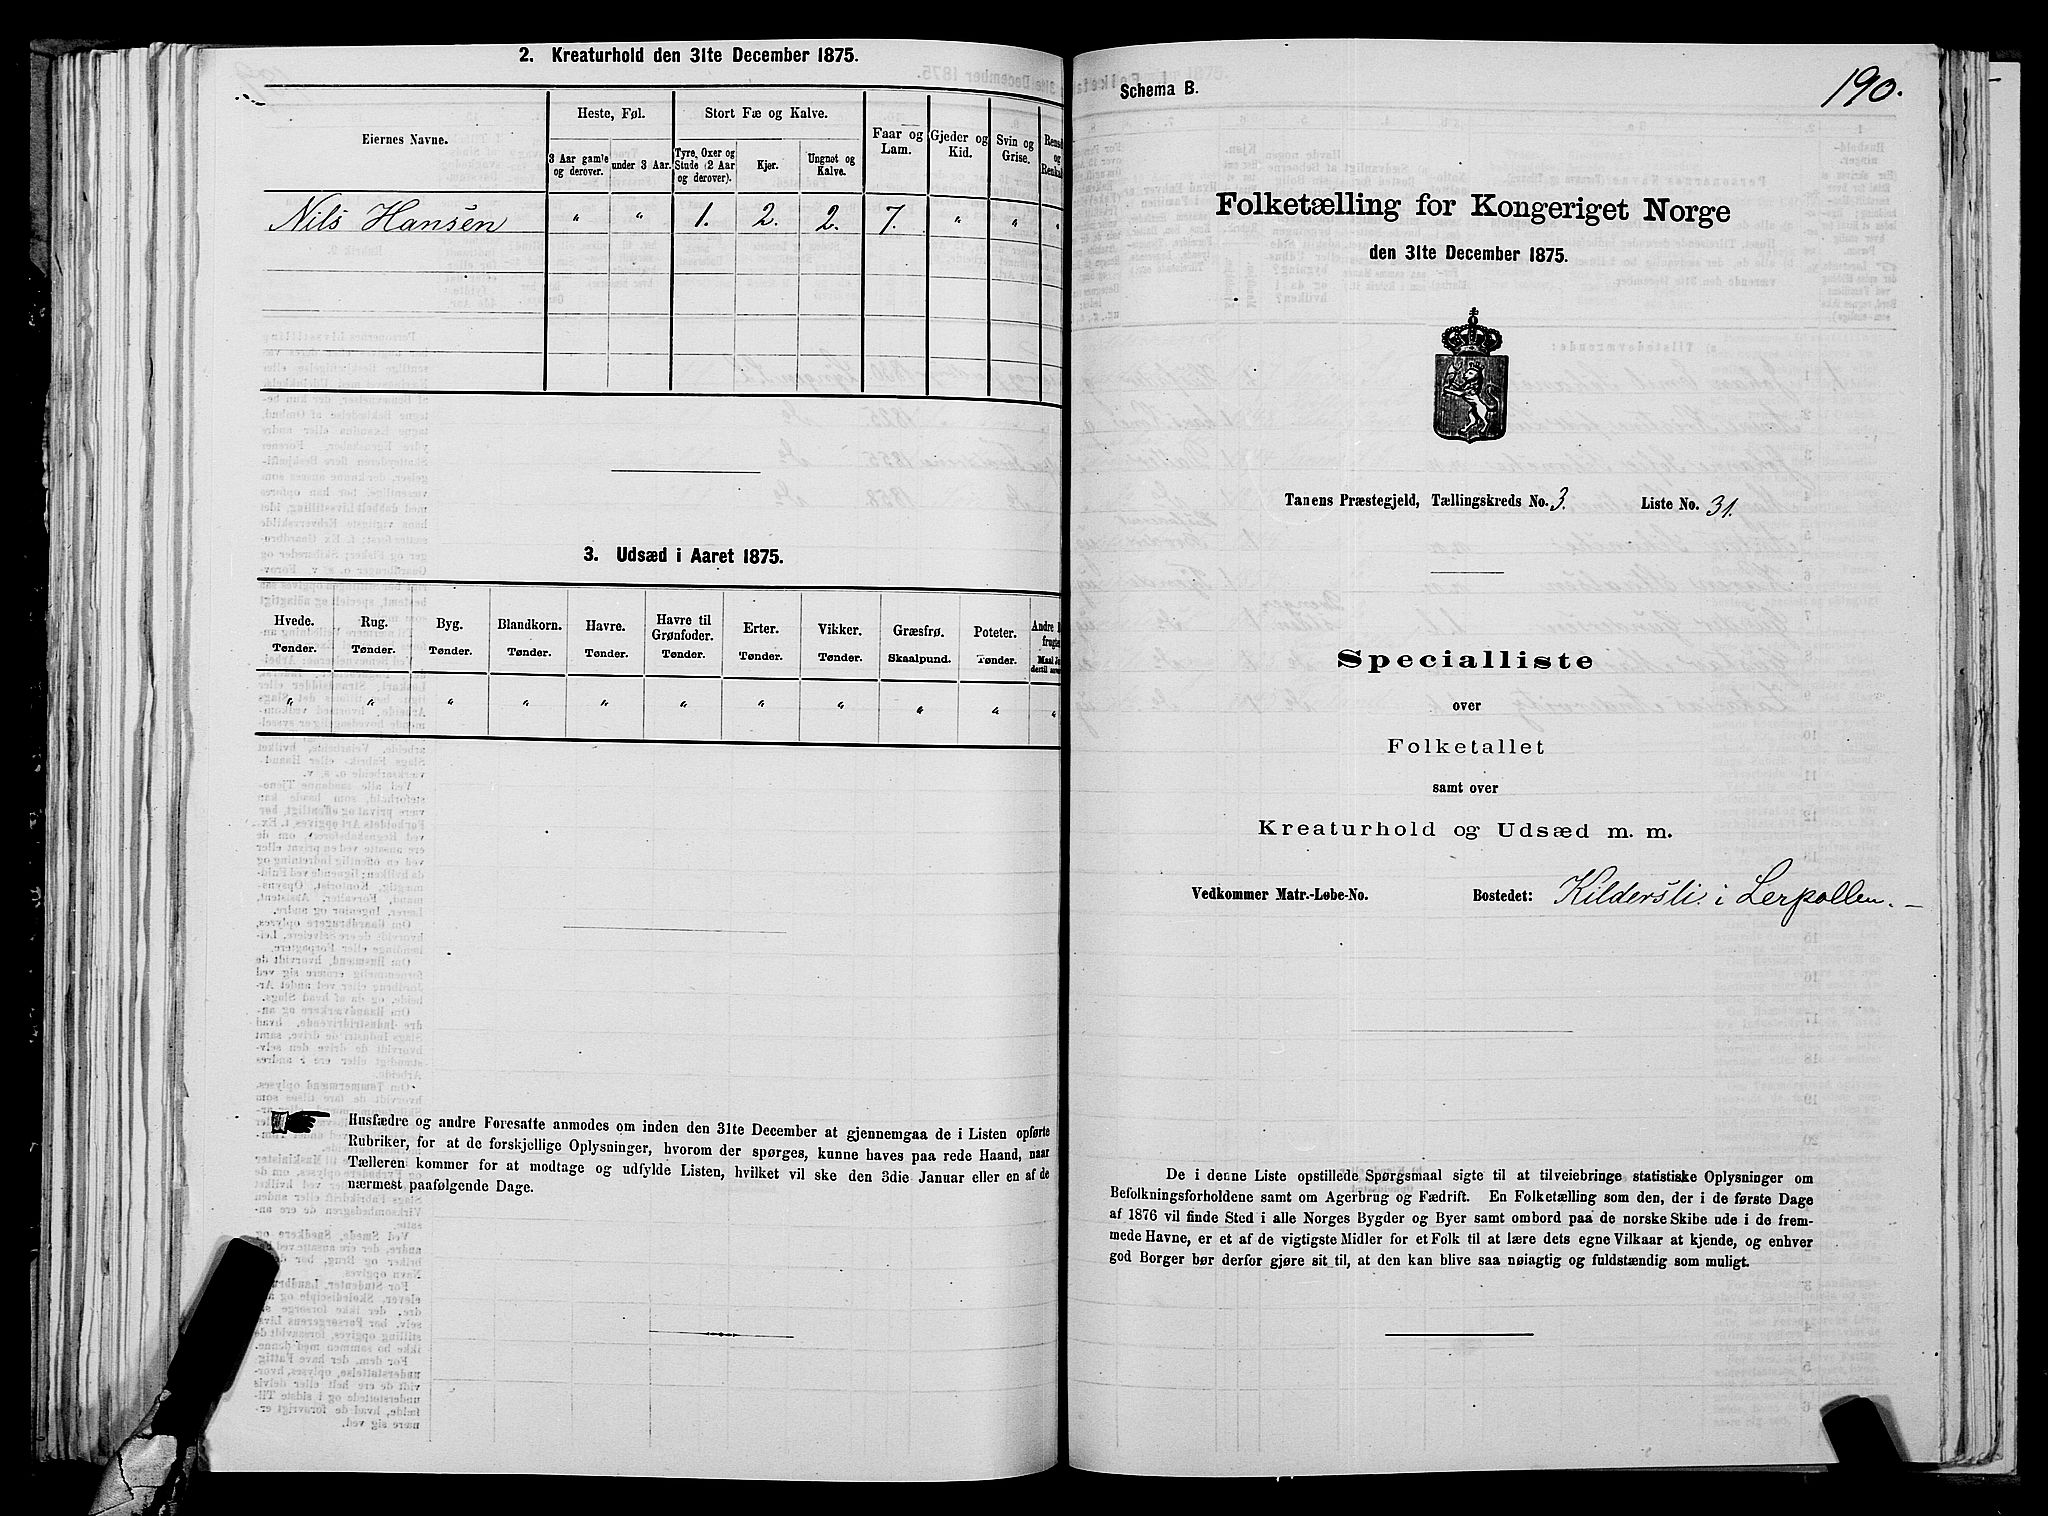 2. Kreaturhold den 31te December 1875.
Eiernes Navne.
Heste, Føl.
Stort Fæ og Kalve.
Faar og
Lam.
Gjeder og
Kid.
Svin og
Grise.
3 Aar gamle
og derover.
under 3 Aar.
Tyre, Oxer og
Stude (2 Aar
og derover).
Kjør.
Ungnøt og
Kalve.
Nils Hansen " " 1. 2. 2. 7. " " "
3. Udsæd i Aaret 1875.
Hvede. Rug. Byg. Blandkorn. Havre. Havre til Grønfoder. Erter. Vikker. Græsfrø. Poteter.
Tønder. Tønder. Tønder. Tønder. Tønder. Tønder. Tønder. Tønder. Skaalpund. Tønder.
" " " " " " " " " " "
Husfædre og andre Foresatte anmodes om inden den 31te December at gjennemgaa de i Listen opførte
Rubriker, for at de forskjellige Oplysninger, hvorom der spørges, kunne haves paa rede Haand, naar
Tælleren kommer for at modtage og udfylde Listen, hvilket vil ske den 3die Januar eller en af de
nærmest paafølgende Dage.
Schema B.
190.
Folketælling for Kongeriget Norge
den 31te December 1875.
Tanens Præstegjeld, Tællingskreds No. 3. Liste No. 31.
Specialliste
over
Folketallet
samt over
Kreaturhold og Udsæd m. m.
Vedkommer Matr.-Løbe-No. Bostedet: Kildersli i Lerpollen.
De i denne Liste opstillede Spørgsmaal sigte til at tilveiebringe statistiske Oplysninger om
Befolkningsforholdene samt om Agerbrug og Fædrift. En Folketælling som den, der i de første Dage
af 1876 vil finde Sted i alle Norges Bygder og Byer samt ombord paa de norske Skibe ude i de frem-
mede Havne, er et af de vigtigste Midler for et Folk til at lære dets egne Vilkaar at kjende, og enhver
god Borger bør derfor gjøre sit til, at den kan blive saa nøiagtig og fuldstændig som muligt.